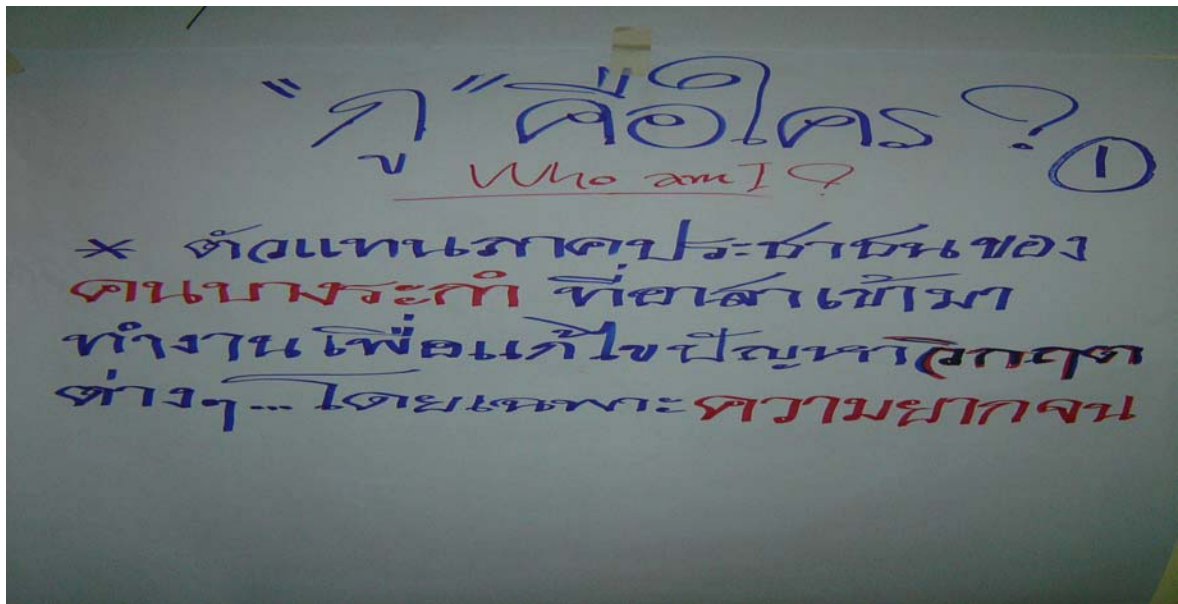 "กู" คือใคร ? ①
Who am I ?
* ตัวแทนภาคประชาชนของ
คนบางระกำ ที่อาสาเข้ามา
ทำงานเพื่อแก้ไขปัญหาวิกฤต
ต่างๆ... โดยเฉพาะความยากจน